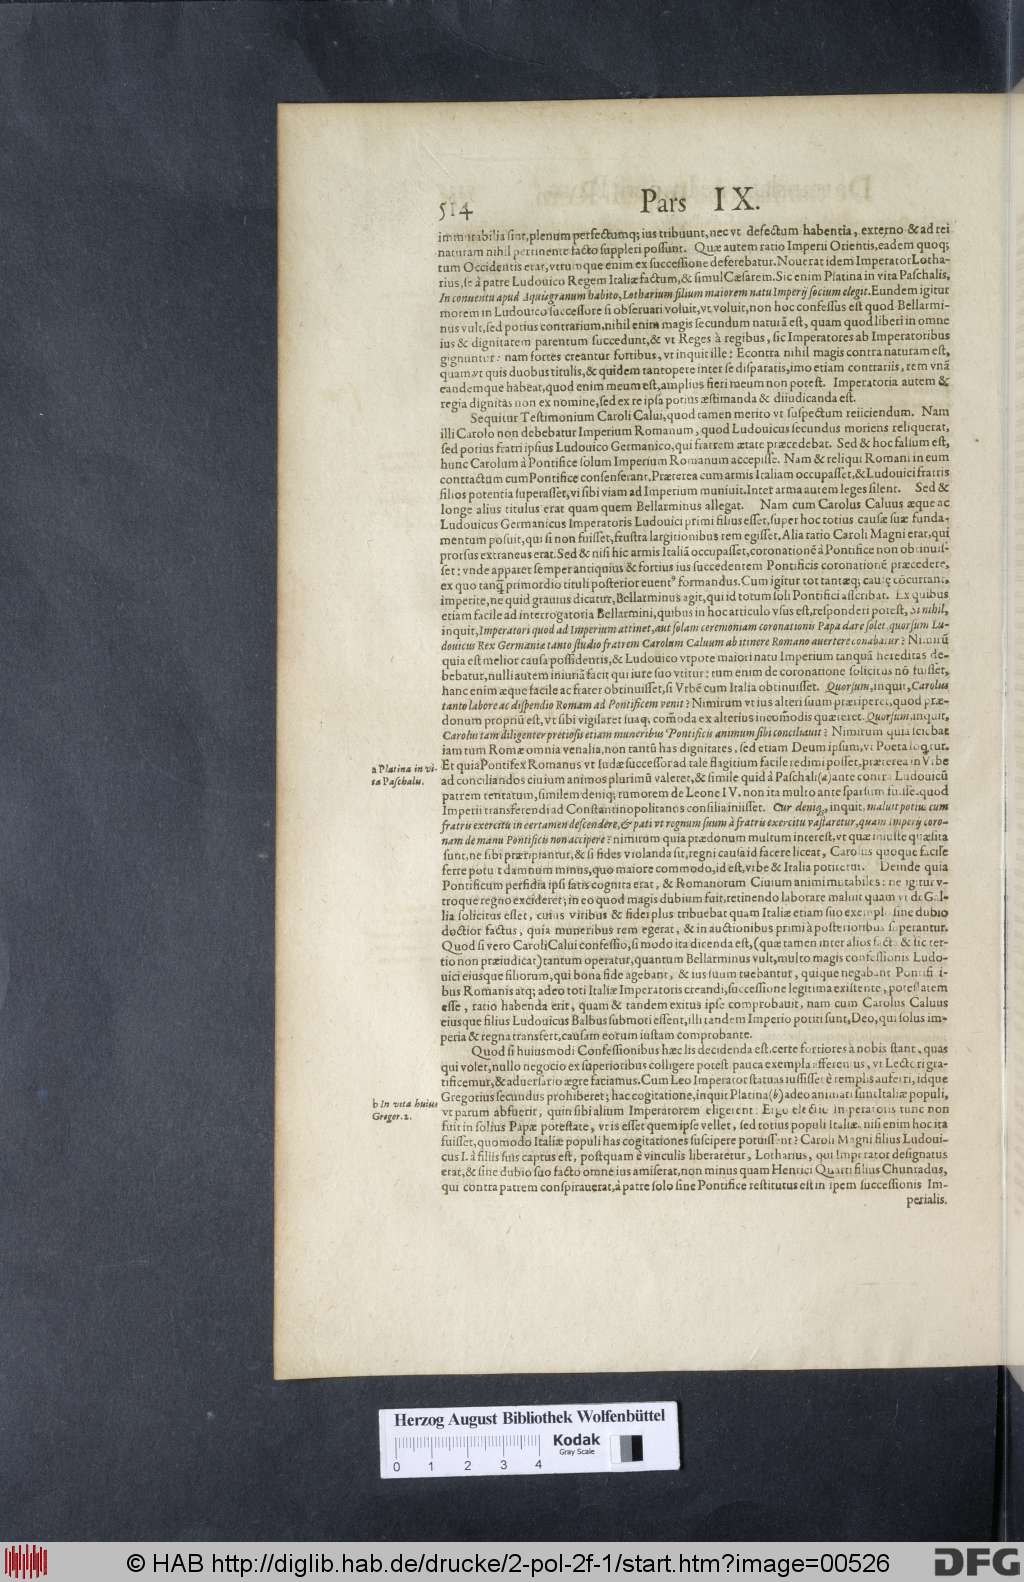 514 Pars IX.
immutabilia sint, plenum perfectumq; ius tribuunt, nec vt defectum habentia, externo & ad rei
naturam nihil pertinente facto suppleri possunt. Quæ autem ratio Imperii Orientis, eadem quoq;
tum Occidentis erat, vtrumque enim ex successione deferebatur. Nouerat idem Imperator Lotha-
rius, se à patre Ludouico Regem Italiæ factum, & simul Cæsarem. Sic enim Platina in vita Paschalis,
In conuentu apud Aquisgranum habito, Lotharium filium maiorem natu Imperij socium elegit. Eundem igitur
morem in Ludouico successore si obseruari voluit, vt voluit, non hoc confessus est quod Bellarmi-
nus vult, sed potius contrarium, nihil enim magis secundum naturã est, quam quod liberi in omne
ius & dignitatem parentum succedunt, & vt Reges à regibus, sic Imperatores ab Imperatoribus
gignuntur: nam fortes creantur fortibus, vt inquit ille: Econtra nihil magis contra naturam est,
quam vt quis duobus titulis, & quidem tantopere inter se disparatis, imo etiam contrariis, rem vnã
eandemque habeat, quod enim meum est, amplius fieri meum non potest. Imperatoria autem &
regia dignitas non ex nomine, sed ex re ipsa potius æstimanda & diiudicanda est.
Sequitur Testimonium Caroli Calui, quod tamen merito vt suspectum reiiciendum. Nam
illi Carolo non debebatur Imperium Romanum, quod Ludouicus secundus moriens reliquerat,
sed potius fratri ipsius Ludouico Germanico, qui fratrem ætate præcedebat. Sed & hoc falsum est,
hunc Carolum à Pontifice solum Imperium Romanum accepisse. Nam & reliqui Romani in eum
contractum cum Pontifice consenserant, Præterea cum armis Italiam occupasset, & Ludouici fratris
filios potentia superasset, vi sibi viam ad Imperium muniuit. Inter arma autem leges silent. Sed &
longe alius titulus erat quam quem Bellarminus allegat. Nam cum Carolus Caluus æque ac
Ludouicus Germanicus Imperatoris Ludouici primi filius esset, super hoc totius causæ suæ funda-
mentum posuit, qui si non fuisset, frustra largitionibus rem egisset, Alia ratio Caroli Magni erat, qui
prorsus extraneus erat. Sed & nisi hic armis Italiã occupasset, coronationẽ à Pontifice non obtinuis-
set: vnde apparet semper antiquius & fortius ius succedentem Pontificis coronationẽ præcedere,
ex quo tanq̃ primordio tituli posterior euentꝰ formandus. Cum igitur tot tantæq; causę cõcurrant,
imperite, ne quid grauius dicatur, Bellarminus agit, qui id totum soli Pontifici ascribat. Ex quibus
etiam facile ad interrogatoria Bellarmini, quibus in hoc articulo vsus est, responderi potest, Si nihil,
inquit, Imperatori quod ad Imperium attinet, aut solam ceremoniam coronationis Papa dare solet, quorsum Lu-
douicus Rex Germaniæ tanto studio fratrem Carolum Caluum ab itinere Romano auertere conabatur? Nimirũ
quia est melior causa possidentis, & Ludouico vtpote maiori natu Imperium tanquã hereditas de-
bebatur, nulli autem iniuriã facit qui iure suo vtitur: tum enim de coronatione solicitus nõ fuisset,
hanc enim æque facile ac frater obtinuisset, si Vrbẽ cum Italia obtinuisset. Quorsum, inquit, Carolus
tanto labore ac dispendio Romam ad Pontificem venit? Nimirum vt ius alteri suum præriperet, quod præ-
donum propriũ est, vt sibi vigilaret suaq; com̃oda ex alterius incom̃odis quæreret. Quorsum, inquit,
Carolus tam diligenter pretiosis etiam muneribus Pontificis animum sibi conciliauit? Nimirum quia sciebat
iam tum Romæ omnia venalia, non tantũ has dignitates, sed etiam Deum ipsum, vt Poeta loq̃tur.
Et quia Pontifex Romanus vt Iudæ successor ad tale flagitium facile redimi posset, præterea in Vrbe
ad conciliandos ciuium animos plurimũ valeret, & simile quid à Paschali (a) ante contra Ludouicũ
patrem tentatum, similem deniq; rumorem de Leone IV. non ita multo ante sparsum fuisse, quod
Imperii transferendi ad Constantinopolitanos consilia iniisset. Cur deniq;, inquit, maluit potius cum
fratris exercitu in certamen descendere, & pati vt regnum suum à fratris exercitu vastaretur, quam Imperij coro-
nam de manu Pontificis non accipere? nimirum quia prædonum multum interest, vt quæ iniuste quæsita
sunt, ne sibi præripiantur, & si fides violanda sit, regni causa id facere liceat, Carolus quoque facile
ferre potuit damnum minus, quo maiore commodo, id est, vrbe & Italia potiretur. Deinde quia
Pontificum perfidia ipsi satis cognita erat, & Romanorum Ciuium animi mutabiles: ne igitur v-
troque regno excideret; in eo quod magis dubium fuit, retinendo laborare maluit quam vt de Gal-
lia solicitus esset, cuius viribus & fidei plus tribuebat quam Italiæ etiam suo exemplo sine dubio
doctior factus, quia muneribus rem egerat, & in auctionibus primi à posterioribus superantur.
Quod si vero Caroli Calui confessio, si modo ita dicenda est, (quæ tamen inter alios facta & sic ter-
tio non præiudicat) tantum operatur, quantum Bellarminus vult, multo magis confessionis Ludo-
uici eiusque filiorum, qui bona fide agebant, & ius suum tuebantur, quique negabant Pontifi i-
bus Romanis atq; adeo toti Italiæ Imperatoris creandi, successione legitima existente, potestatem
esse, ratio habenda erit, quam & tandem exitus ipse comprobauit, nam cum Carolus Caluus
eiusque filius Ludouicus Balbus submoti essent, illi tandem Imperio potiti sunt, Deo, qui solus im-
peria & regna transfert, causam eorum iustam comprobante.
Quod si huiusmodi Confessionibus hæc lis decidenda est, certe fortiores à nobis stant, quas
qui volet, nullo negocio ex superioribus colligere potest pauca exempla afferemus, vt Lectori gra-
tificemur, & aduersario ægre faciamus. Cum Leo Imperator statuas iussisset è templis auferri, idque
Gregorius secundus prohiberet; hac cogitatione, inquit Platina (b) adeo animati sunt Italiæ populi,
vt parum abfuerit, quin sibi alium Imperatorem eligerent: Ergo electio imperatoris tunc non
fuit in solius Papæ potestate, vt is esset quem ipse vellet, sed totius populi Italiæ, nisi enim hoc ita
fuisset, quomodo Italiæ populi has cogitationes suscipere potuissent? Caroli Magni filius Ludoui-
cus I. à filiis suis captus est, postquam è vinculis liberaretur, Lotharius, qui Imperator designatus
erat, & sine dubio suo facto omne ius amiserat, non minus quam Henrici Quarti filius Chunradus,
qui contra patrem conspirauerat, à patre solo sine Pontifice restitutus est in spem successionis Im-
perialis.
a Platina in vi-
ta Paschalis.
b In vita huius
Gregor. 2.
Herzog August Bibliothek Wolfenbüttel
Kodak
Gray Scale
0 1 2 3 4
© HAB http://diglib.hab.de/drucke/2-pol-2f-1/start.htm?image=00526
DFG